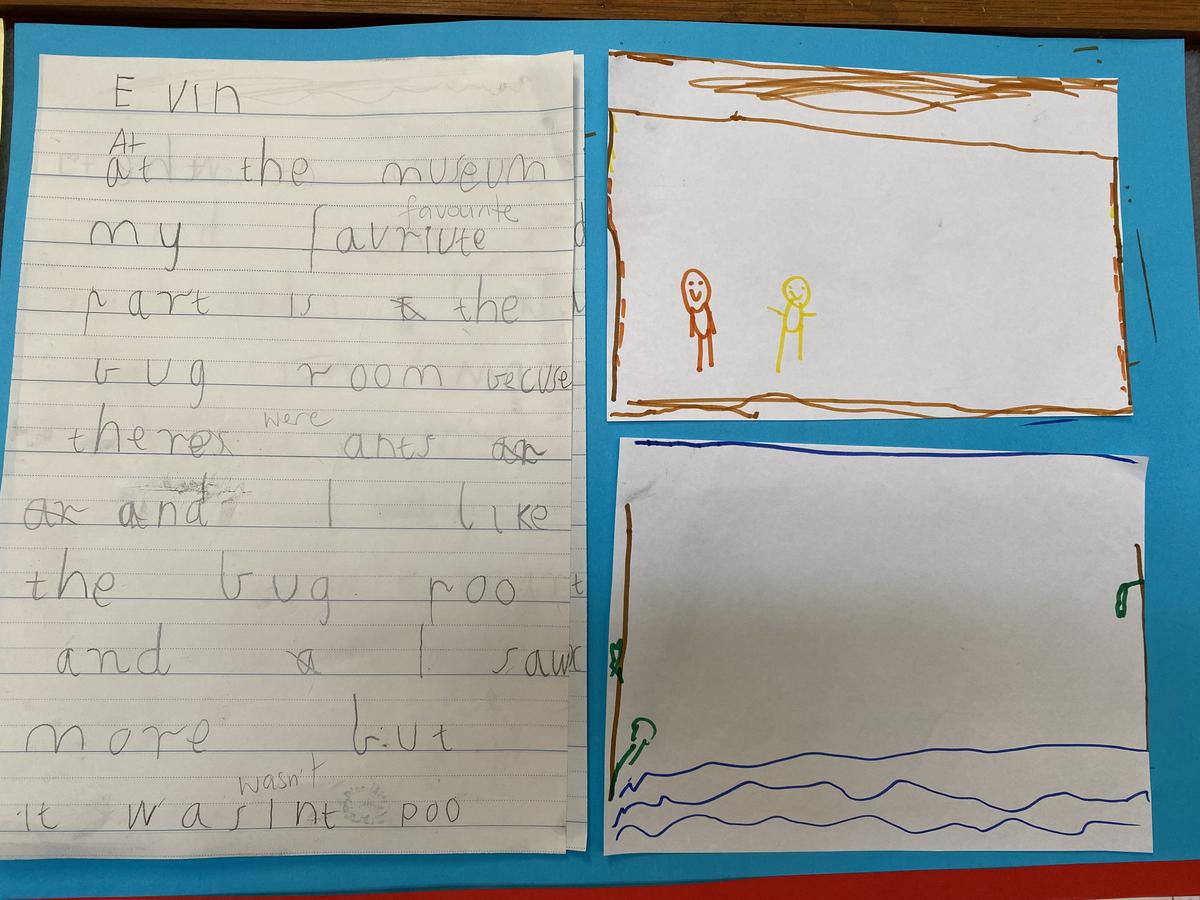 Evin
At
at the museum
favourite
my favriute
part is the
bug room becuse
were
theres ants an
an and I like
the bug poo
and a I saw
more but
wasn't
it wasint poo